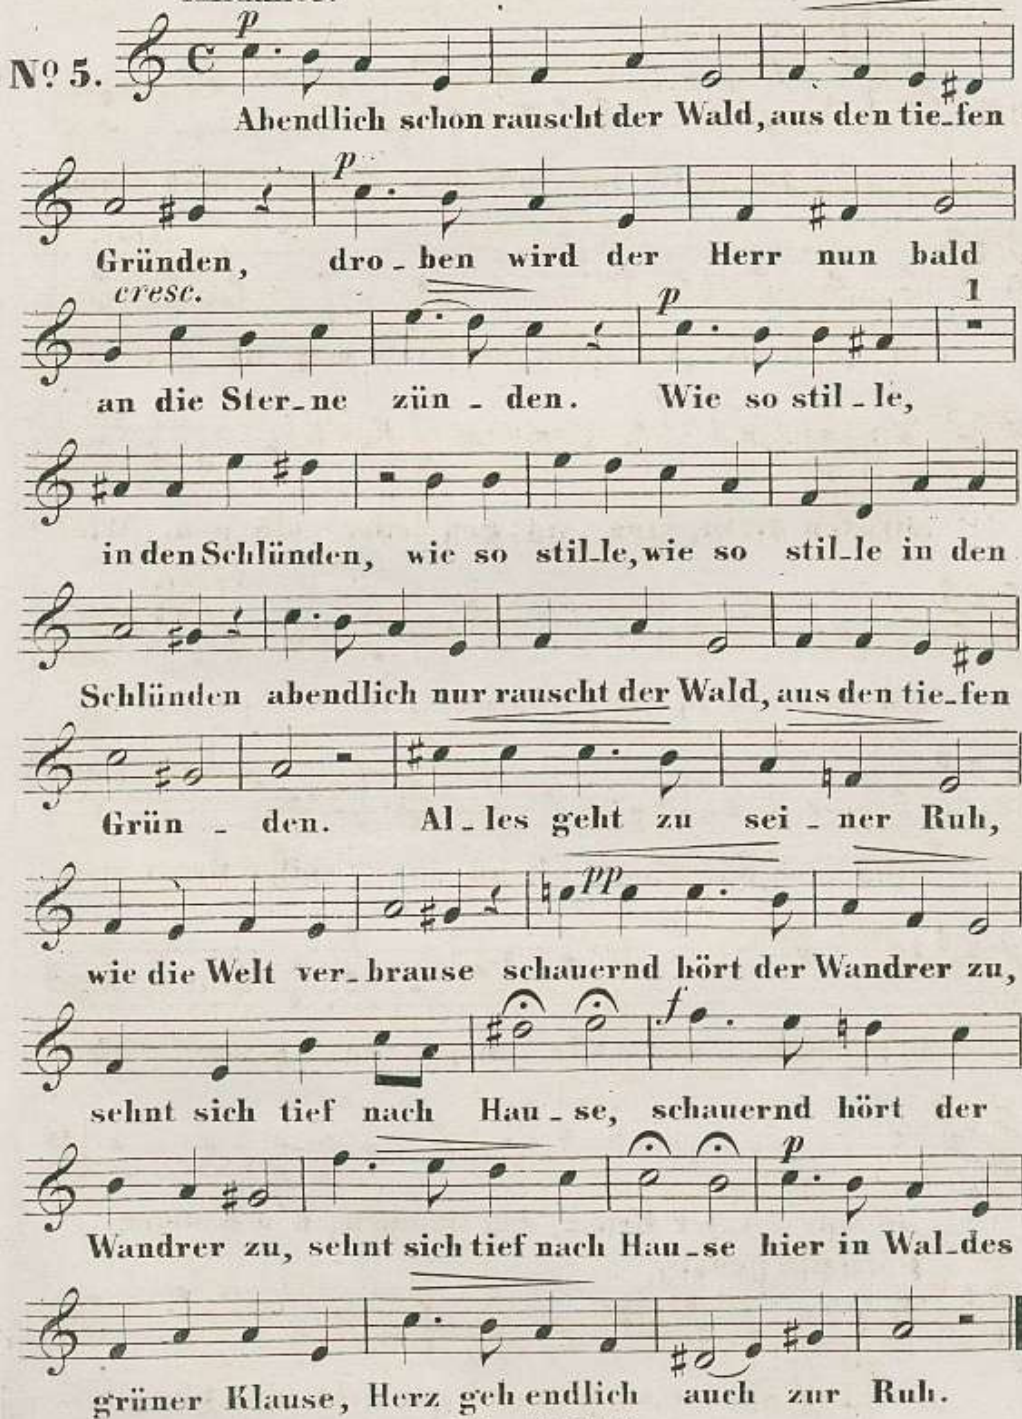 p
Nº 5.
Abendlich schon rauscht der Wald, aus den tie-fen
p
Gründen, dro-ben wird der Herr nun bald
cresc. p 1
an die Ster-ne zün-den. Wie so stil-le,
in den Schlünden, wie so stil-le, wie so stil-le in den
Schlünden abendlich nur rauscht der Wald, aus den tie-fen
Grün-den. Al-les geht zu sei-ner Ruh,
pp
wie die Welt ver-brause schauernd hört der Wandrer zu,
f
sehnt sich tief nach Hau-se, schauernd hört der
p
Wandrer zu, sehnt sich tief nach Hau-se hier in Wal-des
grüner Klause, Herz geh endlich auch zur Ruh.